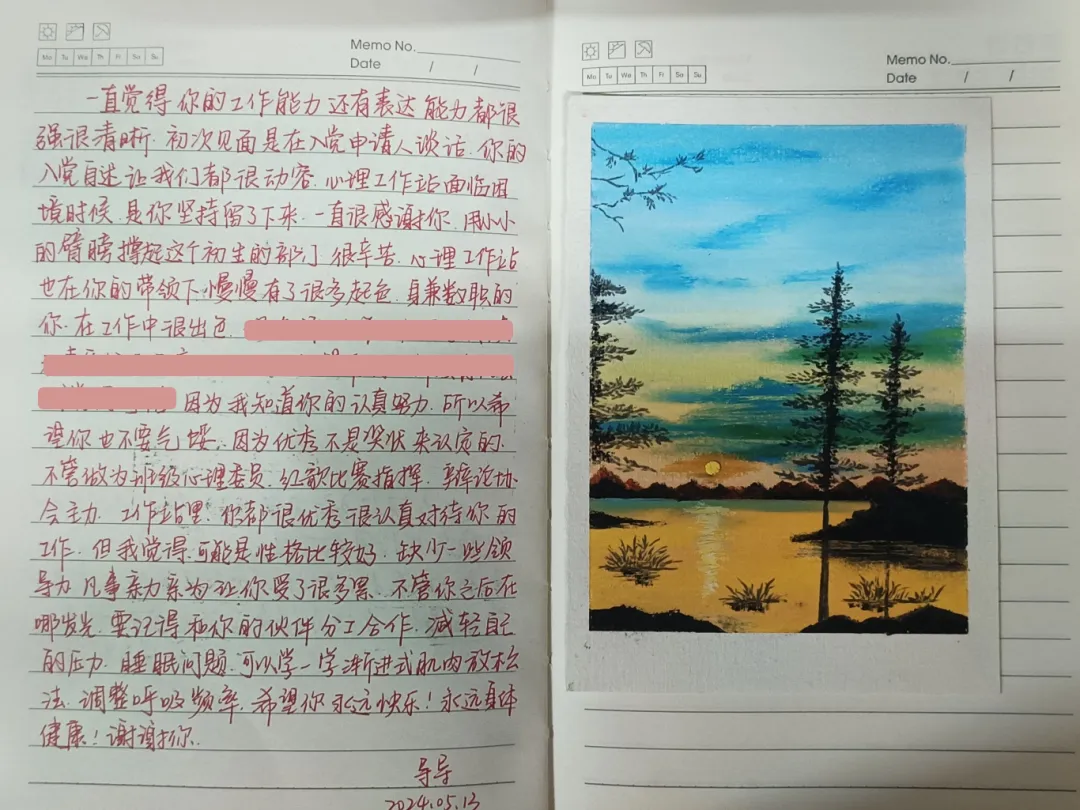 Mo Tu We Th Fr Sa Su
Memo No.
Date / /
一直觉得你的工作能力还有表达能力都很
强很清晰.初次见面是在入党申请人谈话.你的
入党自述让我们都很动容.心理工作站面临困
境时候.是你坚持留了下来.一直很感谢你.用小小
的臂膀撑起这个初生的部门很辛苦.心理工作站
也在你的带领下慢慢有了很多起色.身兼数职的
你.在工作中很出色.
因为我知道你的认真努力.所以希
望你也不要气馁.因为优秀不是奖状来认定的.
不管做为班级心理委员.红歌比赛指挥.辩论协
会主力.工作站里.你都很优秀很认真对待你的
工作.但我觉得.可能是性格比较好.缺少一些领
导力.凡事亲力亲为让你受了很多累.不管你之后在
哪发光.要记得和你的伙伴分工合作.减轻自己
的压力.睡眠问题.可以学一学渐进式肌肉放松
法.调整呼吸频率.希望你永远快乐!永远身体
健康!谢谢你.
导导
2024.05.13
Mo Tu We Th Fr Sa Su
Memo No.
Date / /